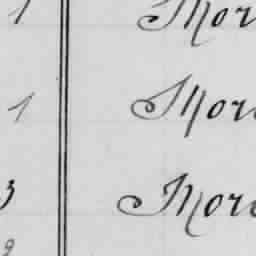 1 Mor
1 Mor
3 Mor